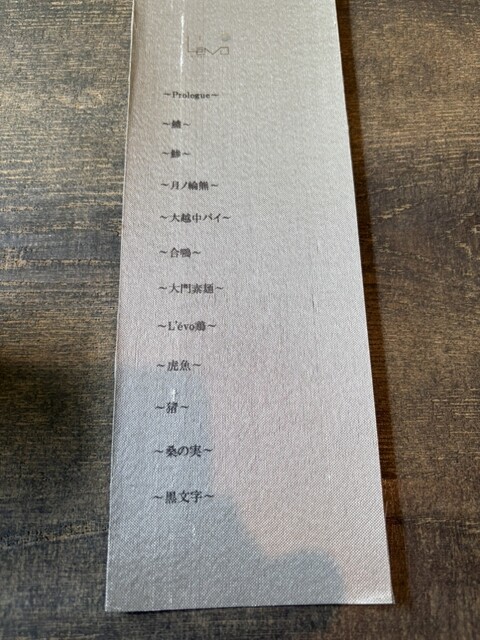 L'évo
~Prologue~
~月ノ輪熊~
~大越中バイ~
~合鴨~
~大門素麺~
~L'évo鶏~
~虎魚~
~猪~
~桑の実~
~黒文字~